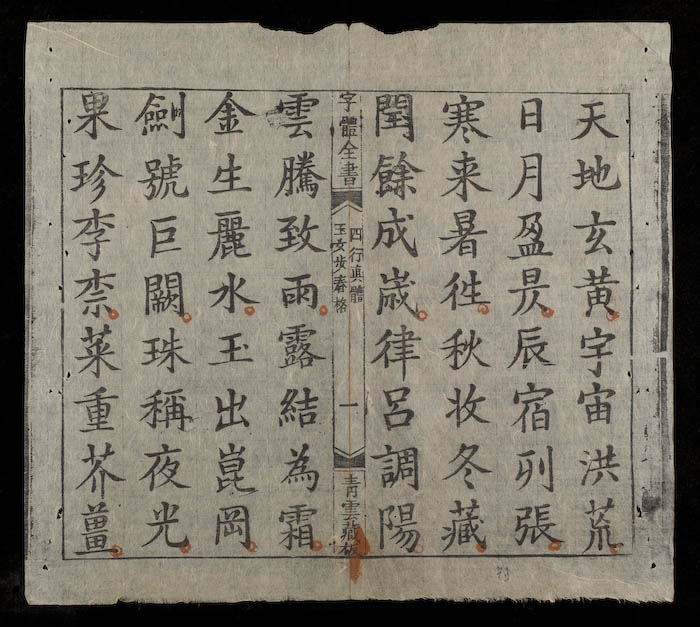 天地玄黃宇宙洪荒
日月盈昃辰宿列張
寒来暑徃秋收冬藏
閏餘成歲律呂調陽
字體全書
四行眞體
玉女步春格
一
青雲藏板
雲騰致雨露結為霜
金生麗水玉出崑岡
劍號巨闕珠稱夜光
果珍李柰菜重芥薑